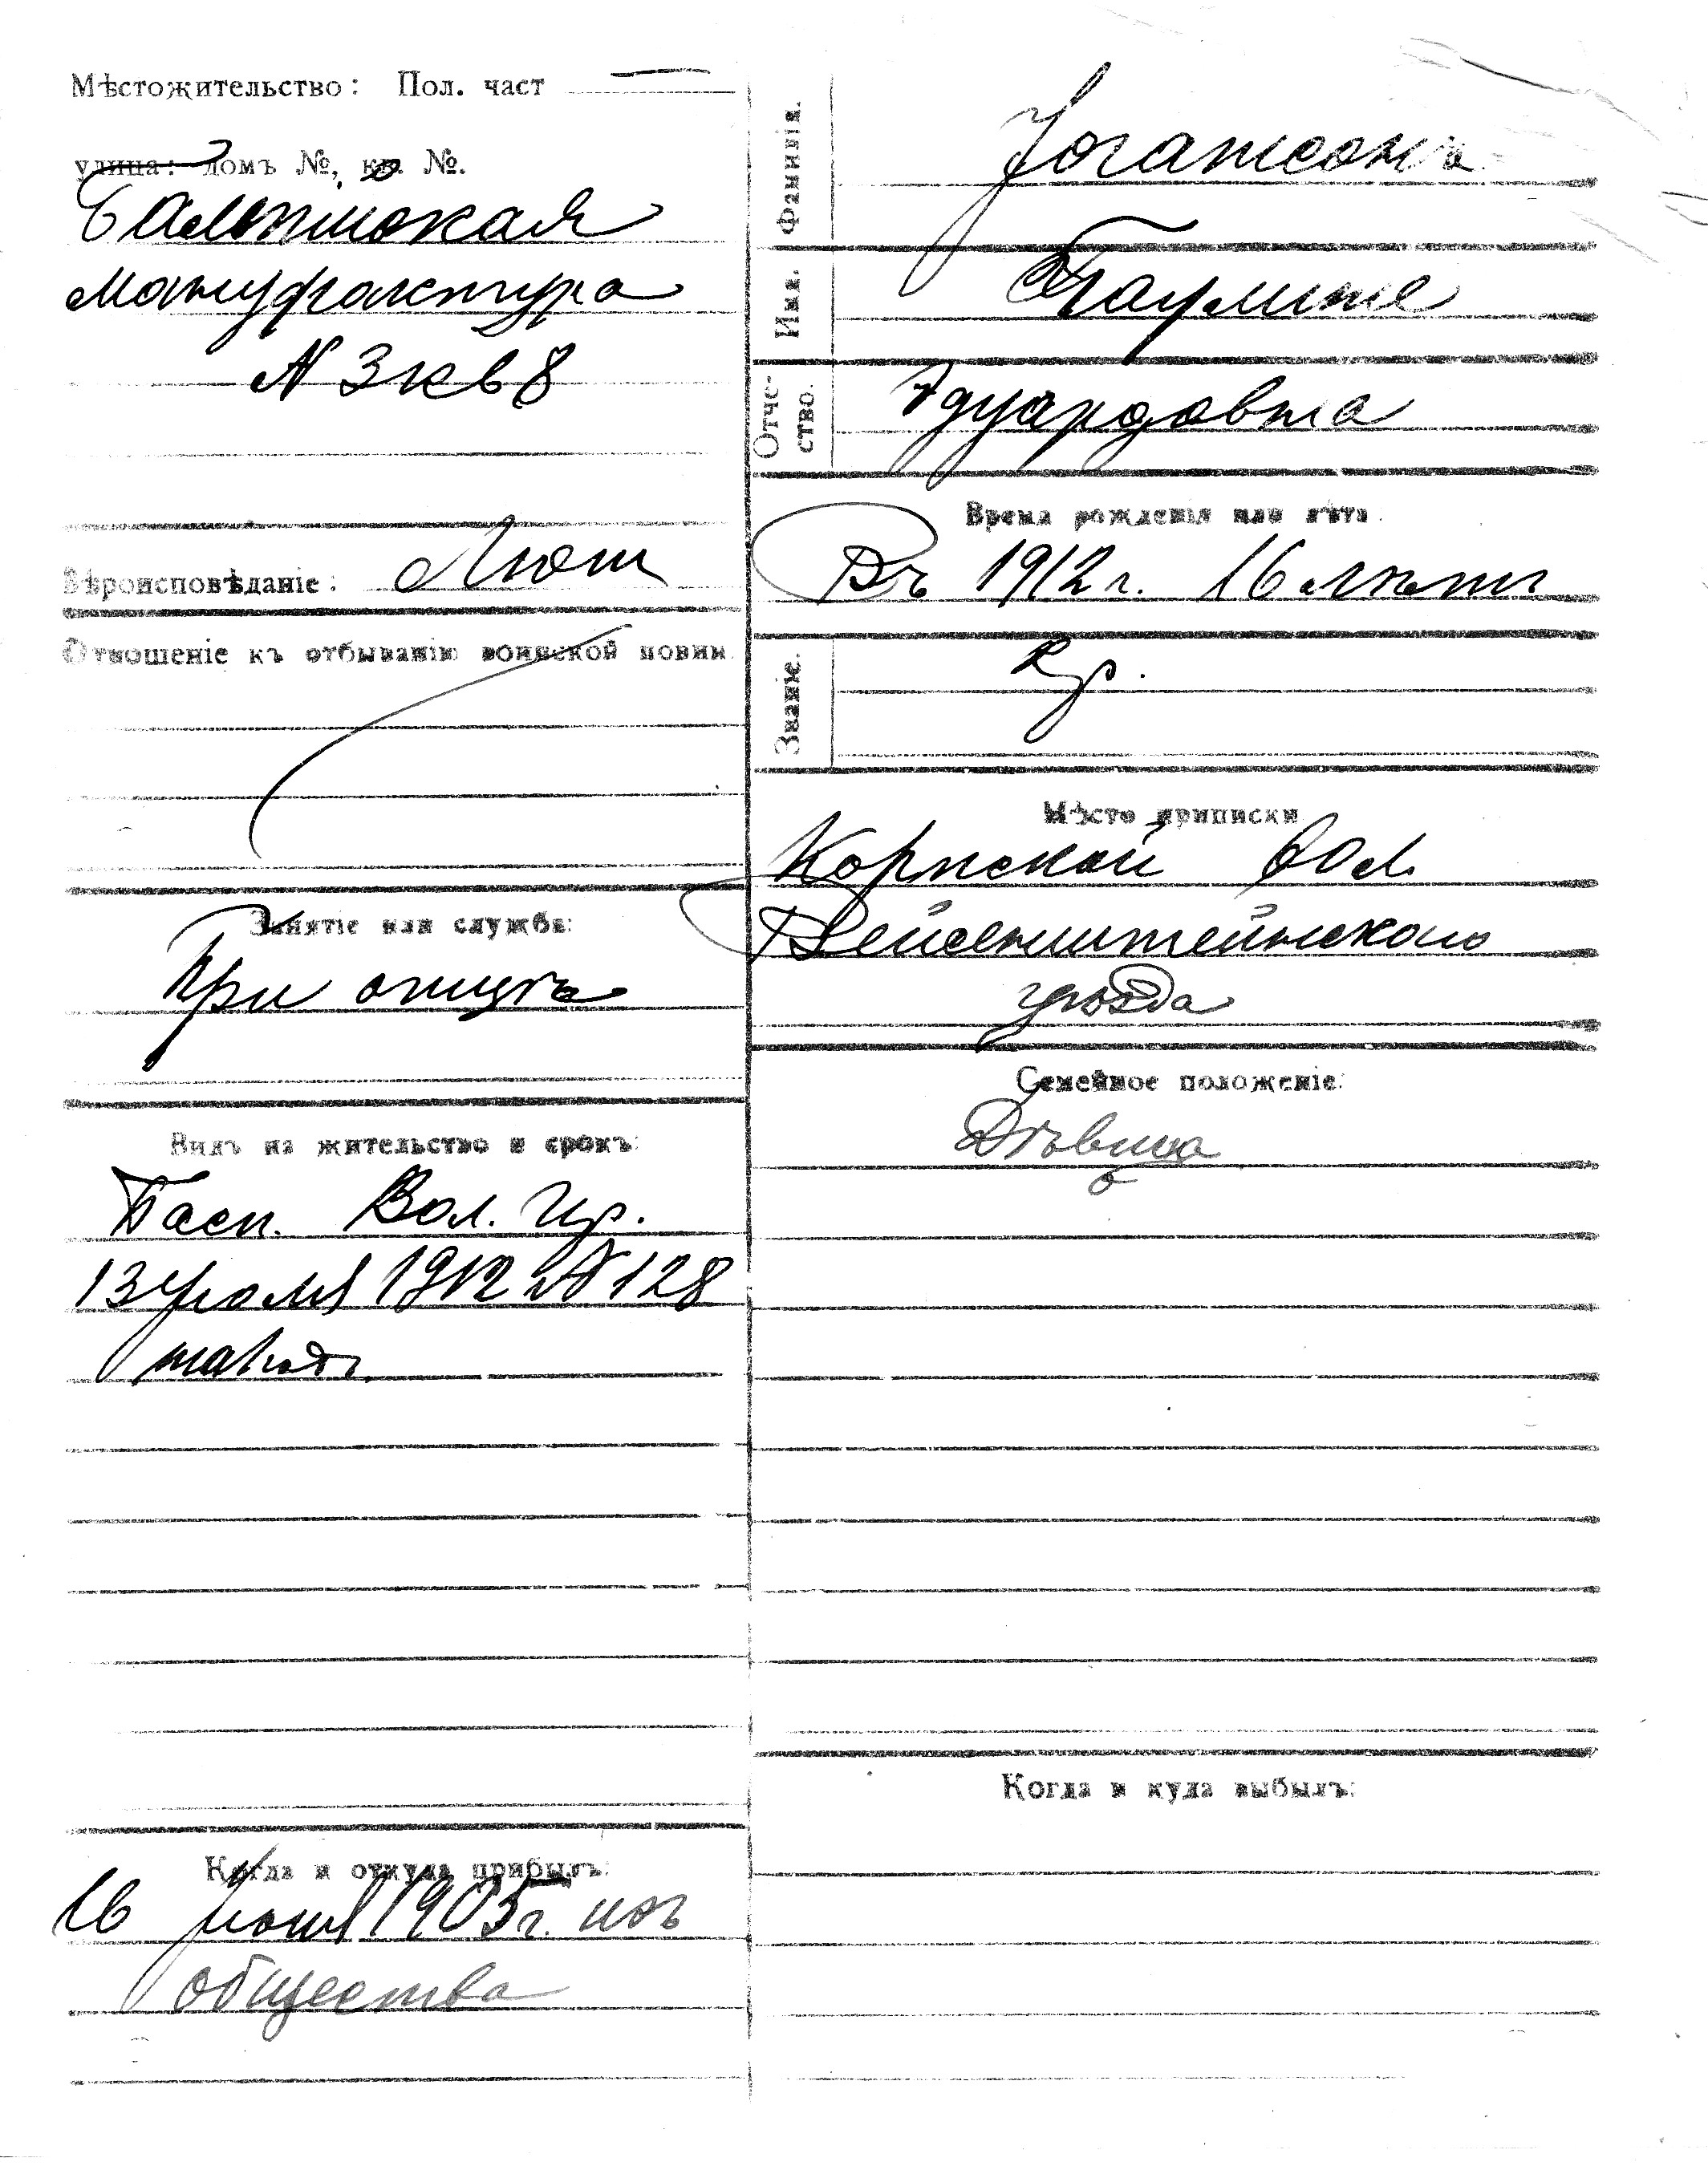 Мѣстожительство: Пол. част
улица: домъ №, кв. №.
Балтійская
мануфактура
№ 3 кв 8
Вѣроисповѣданіе: Лют
Отношеніе къ отбыванію воинской повин.
Занятіе или служба:
При отцѣ
Видъ на жительство и срокъ:
Пасп. Вол. Пр.
13 Іюля 1912 № 128
на годъ
Когда и откуда прибылъ:
16 Іюня 1905 г. изъ
общества
Фамилія.
Іогансонъ
Имя.
Паулине
Отче-
ство.
Эдуардовна
Время рожденія или лѣта:
Въ 1912 г. 16 лѣтъ
Званіе.
Кр.
Мѣсто приписки
Корпской вол.
Вейсенштейнскаго
уѣзда
Семейное положеніе:
Дѣвица
Когда и куда выбылъ: